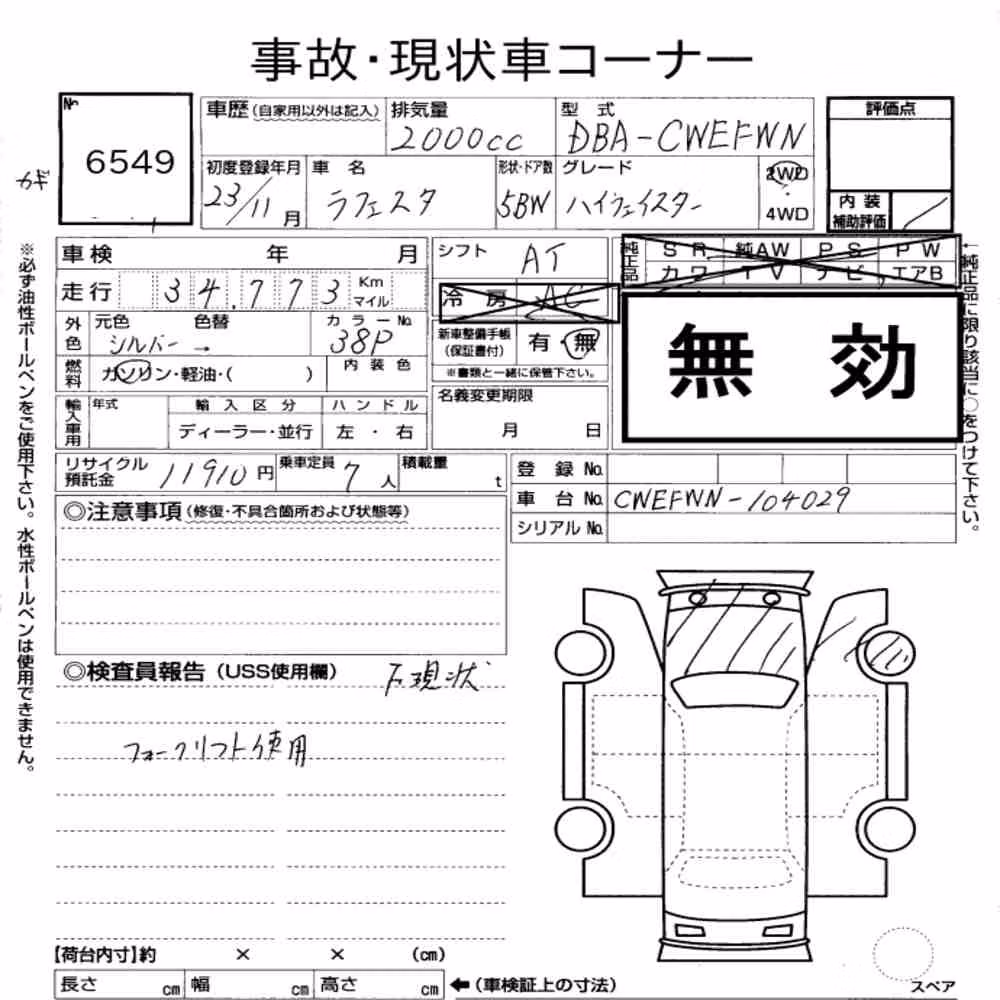 事故・現状車コーナー
№
6549
カギ
車歴(自家用以外は記入)
排気量
2000cc
型式
DBA-CWEFWN
初度登録年月
23/11月
車名
ラフェスタ
形状・ドア数
5BW
グレード
ハイウェイスター
2WD
・
4WD
評価点
内装
補助評価
車検 年 月
走行 34,773 Km
マイル
シフト
AT
冷房 AC
純正品
SR 純AW PS PW
カワ TV ナビ エアB
無効
外色
元色 色替
シルバー →
カラーNo.
38P
新車整備手帳
(保証書付)
有・無
※書類と一緒に保管下さい。
燃料
ガソリン・軽油・( )
内装色
輸入車用
年式
輸入区分
ディーラー・並行
ハンドル
左・右
名義変更期限
月 日
リサイクル
預託金
11910円
乗車定員
7人
積載量
t
登録No.
車台No. CWEFWN-104029
シリアルNo.
◎注意事項(修復・不具合箇所および状態等)
◎検査員報告(USS使用欄)
下現状
フォークリフト使用
【荷台内寸】約 × × (cm)
長さ cm 幅 cm 高さ cm ←(車検証上の寸法)
スペア
※必ず油性ボールペンをご使用下さい。水性ボールペンは使用できません。
←純正品に限り該当に○をつけて下さい。